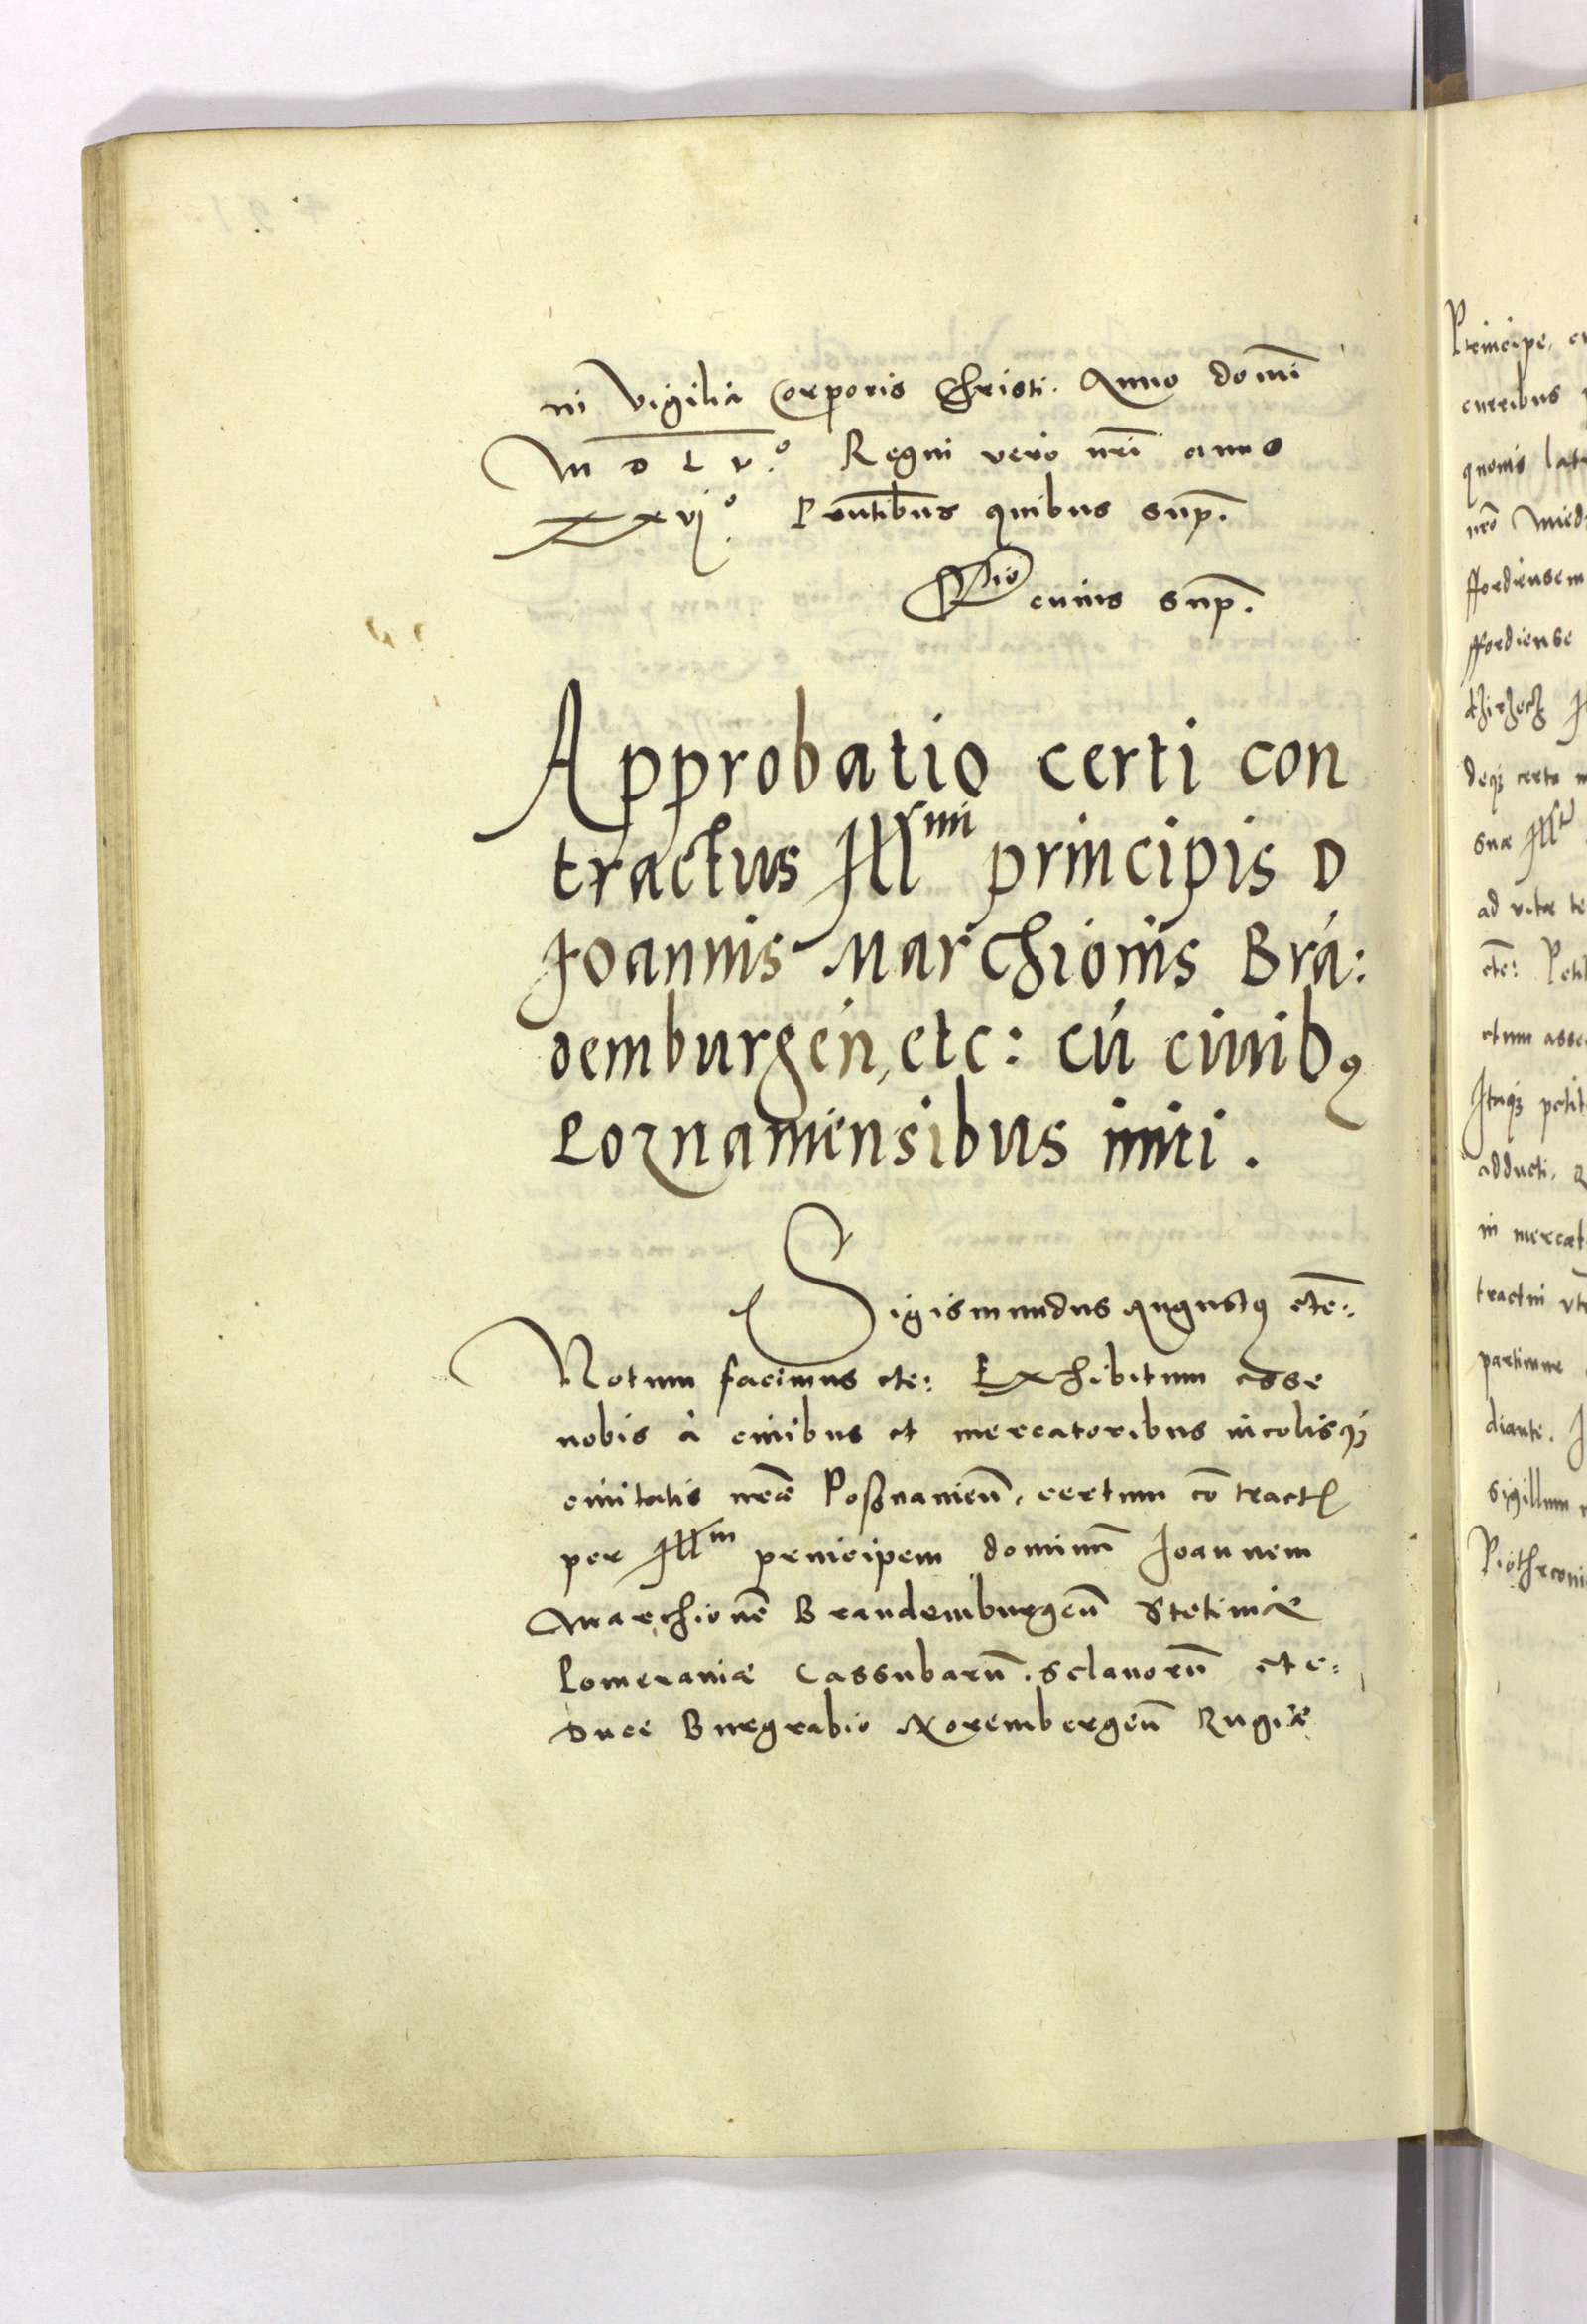 in Vigilia Corporis Christi. Anno domi
M D L V.° Regni vero nrī anno
xxvj.° Pntibus quibus supͣ.
Rio cuius sup.
Approbatio certi con
tractus Illmi principis D
Joannis Marchionis Brā:
demburgen̄, etc: cū ciuibꝫ
Poznaniensibus initi.
Sigismundus Augustꝫ etc:
Notum facimus etc: Exhibitum esse
nobis à ciuibus et mercatoribus incolisqꝫ
ciuitatis nr̄ae Poßnanien̄, certum cōtractū
per Illm principem dominū Joannem
Marchionē Brandemburgen̄ Stetiniæ
Pomeraniæ Cassubarū. Sclauorū etc:
Duce Burgrabio Norembergen̄ Rugiæ
Principe,
curribus
quouis
nr̄o
ffordiensem
ffordiense
deqꝫ certo
suæ Illᵗⁱ
ad vitæ te
etc: Peti
ctum asse
Itaqꝫ petit
adducti.
in mercat
tractui
partimur
diante.
sigillum
Piothrconi